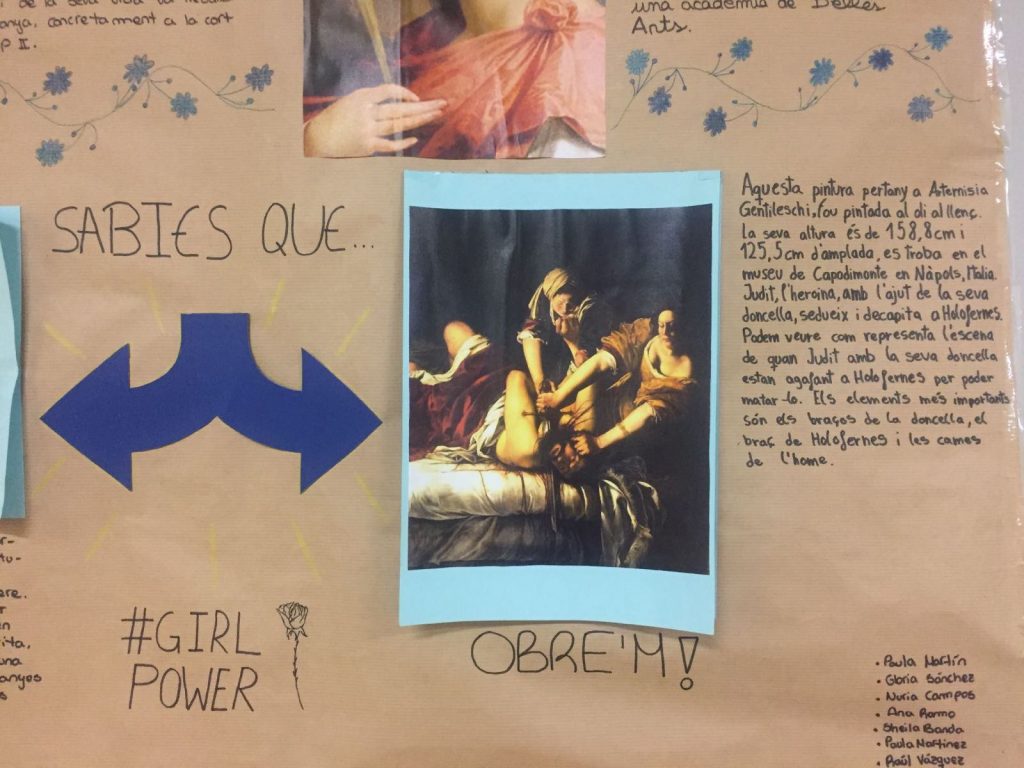 de la seva vida va
anya, concretament a la cort
p II.
una acadèmia de Belles
Arts.
SABIES QUE...
Aquesta pintura pertany a Asternisia
Gentileschi, fou pintada al oli al llenç.
La seva altura és de 158,8cm i
125,5cm d'amplada, es troba en el
museu de Capodimonte en Nàpols, Italia.
Judit, l'heroina, amb l'ajut de la seva
doncella, sedueix i decapita a Holofernes.
Podem veure com representa l'escena
de quan Judit amb la seva doncella
estan agafant a Holofernes per poder
matar-lo. Els elements més importants
són els braços de la doncella, el
braç de Holofernes i les cames
de l'home.
r-
tu-
are.
r
en
ita,
una
anyes
s
#GIRL
POWER
OBRE'M!
• Paula Martín
• Gloria Sánchez
• Nuria Campos
• Ana Ramo
• Sheila Banda
• Paula Martínez
• Raúl Vázquez